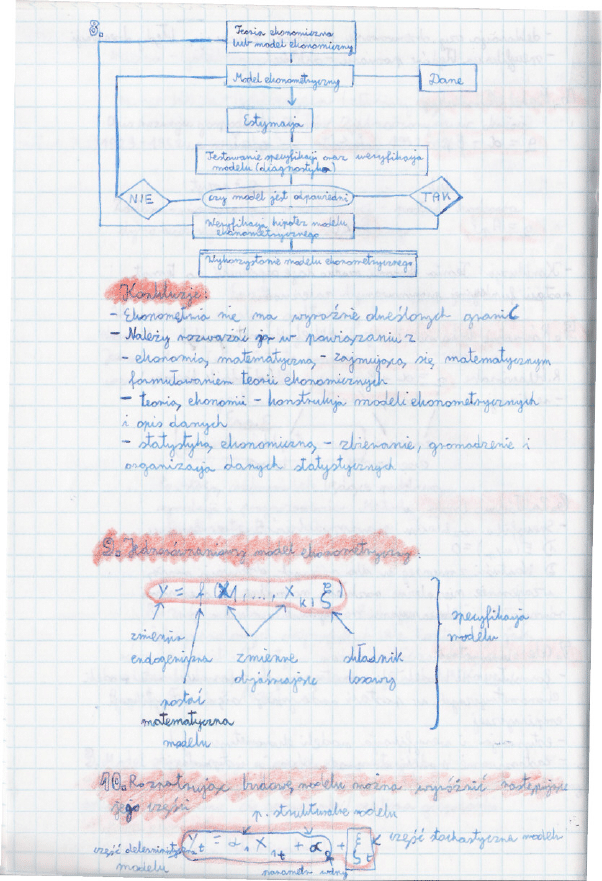 8.
Teoria ekonomiczna
lub model ekonomiczny
Model ekonometryczny
Dane
Estymacja
Testowanie specyfikacji oraz weryfikacja
modelu (diagnostyka)
NIE
czy model jest odpowiedni
TAK
Weryfikacja hipotez modelu
ekonometrycznego
Wykorzystanie modelu ekonometrycznego
Konkluzje:
- Ekonometria nie ma wyraźnie określonych granic
- Należy rozważać ją w powiązaniu z
- ekonomią matematyczną - zajmującą się matematycznym
formułowaniem teorii ekonomicznych
- teorią ekonomii - konstrukcja modeli ekonometrycznych
i opis danych
- statystyką ekonomiczną - zbieranie, gromadzenie i
organizacja danych statystycznych
9. Jednorównaniowy model ekonometryczny.
y = f (X1, ..., Xk, ξ)
zmienna
endogeniczna
zmienne
objaśniające
składnik
losowy
specyfikacja
modelu
postać
matematyczna
modelu
10. Rozpatrując budowę modelu można wyróżnić następujące
jego części
p. strukturalne modelu
część deterministyczna
modelu
Yt = α1 X1t + α2 + ξt
część stochastyczna modelu
parametr wolny